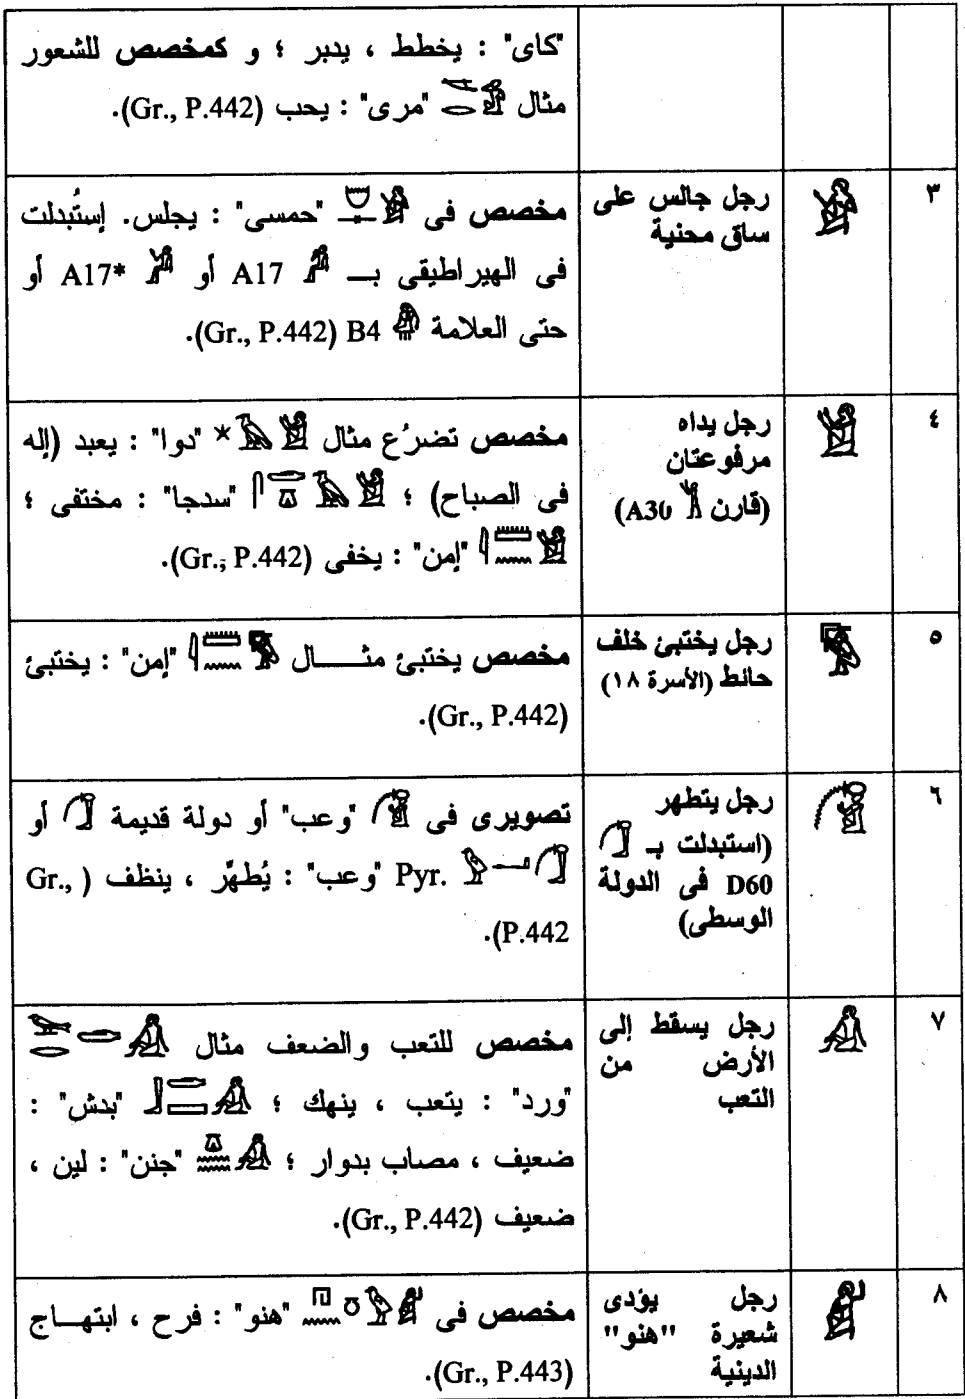 "كاى" : يخطط ، يدبر ؛ و كمخصص للشعور
مثال 𓌸𓂋𓀁 "مرى" : يحب (Gr., P.442).
٣
𓀂
رجل جالس على
ساق محنية
مخصص فى "حمسى" : يجلس. إستُبدلت
فى الهيراطيقى بـ A17 أو A17* أو
حتى العلامة B4 (Gr., P.442).
٤
𓀃
رجل يداه
مرفوعتان
(قارن A30)
مخصص تضرُع مثال "دوا" : يعبد (إله
فى الصباح) ؛ "سدجا" : مختفى ؛
"إمن" : يخفى (Gr., P.442).
٥
رجل يختبئ خلف
حائط (الأسرة ١٨)
مخصص يختبئ مثـــــال "إمن" : يختبئ
(Gr., P.442).
٦
رجل يتطهر
(استبدلت بـ
D60 فى الدولة
الوسطى)
تصويرى فى "وعب" أو دولة قديمة أو
Pyr. "وعب" : يُطهَّر ، ينظف (Gr.,
P.442).
٧
رجل يسقط إلى
الأرض من
التعب
مخصص للتعب والضعف مثال
"ورد" : يتعب ، ينهك ؛ "بدش" :
ضعيف ، مصاب بدوار ؛ "جنن" : لين ،
ضعيف (Gr., P.442).
٨
رجل يؤدى
شعيرة "هنو"
الدينية
مخصص فى "هنو" : فرح ، ابتهـــاج
(Gr., P.443).